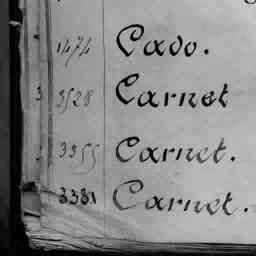 1474 Cavo.
3528 Carnet
3355 Carnet.
3381 Carnet.